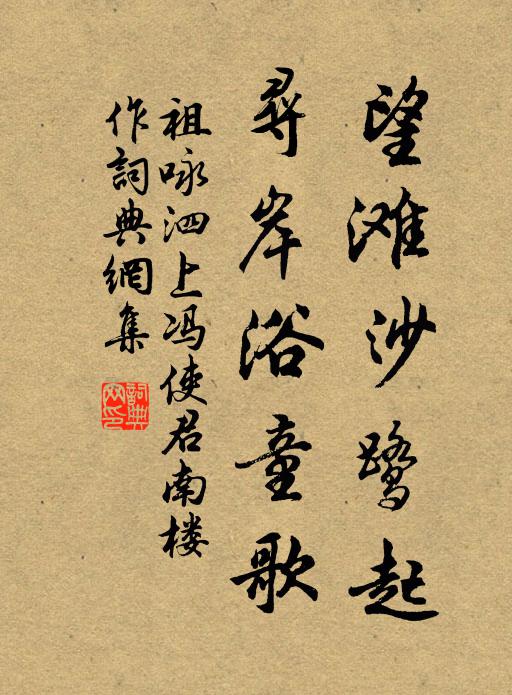 望滩沙鹭起
尋岸浴童歌
祖咏泗上冯使君南楼
作詞典網集
詞典網印